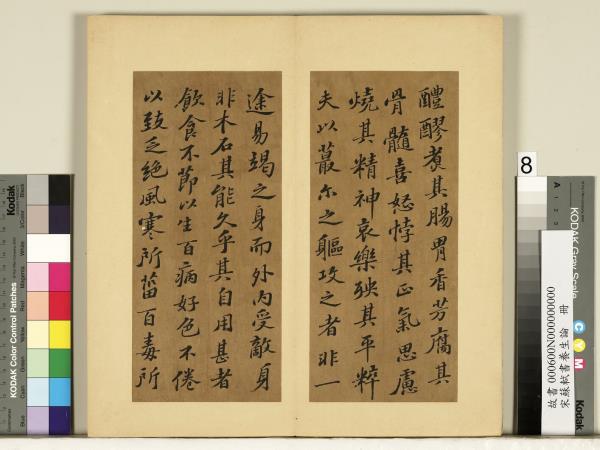 醴醪煑其腸胃香芳腐其
骨髓喜怒悖其正氣思慮
燒其精神哀樂殃其平粹
夫以蕞尒之軀攻之者非一
途易竭之身而外内受敵身
非木石其能久乎其自用甚者
飲食不節以生百病好色不倦
以致乏絶風寒所菑百毒所
8
KODAK Gray Scale
C Y M
Kodak
A 1 2 3
故書 000600N000000000
宋蘇軾書養生論 冊
Kodak
KODAK Color Control Patches
Blue
Cyan
Green
Yellow
Red
Magenta
White
3/Color
Black